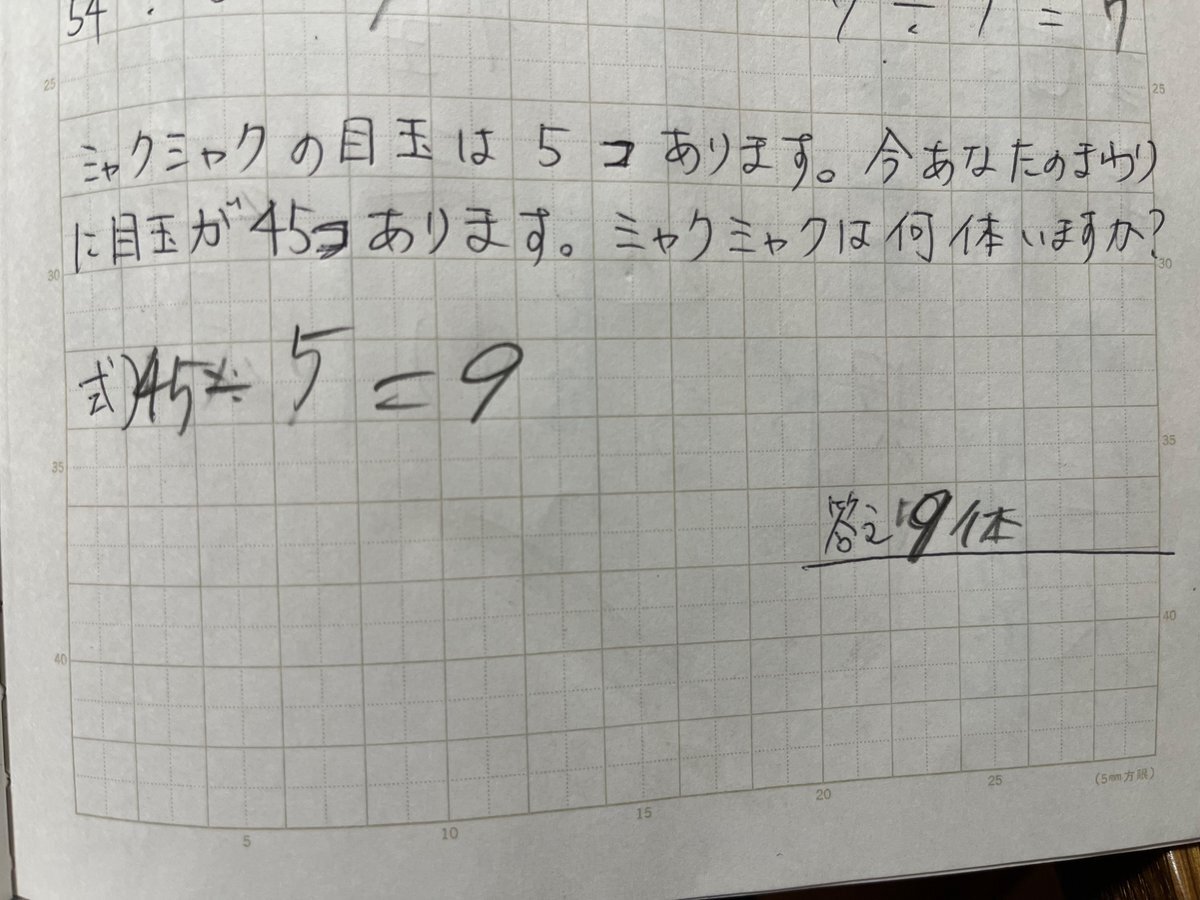 54
7 ÷ 1 = 7
25 25
ミャクミャクの目玉は5コあります。今あなたのまわり
に目玉が45コあります。ミャクミャクは何体いますか?
30 30
式)45÷5=9
35 35
答え 9体
40 40
5 10 15 20 25 (5mm方眼)